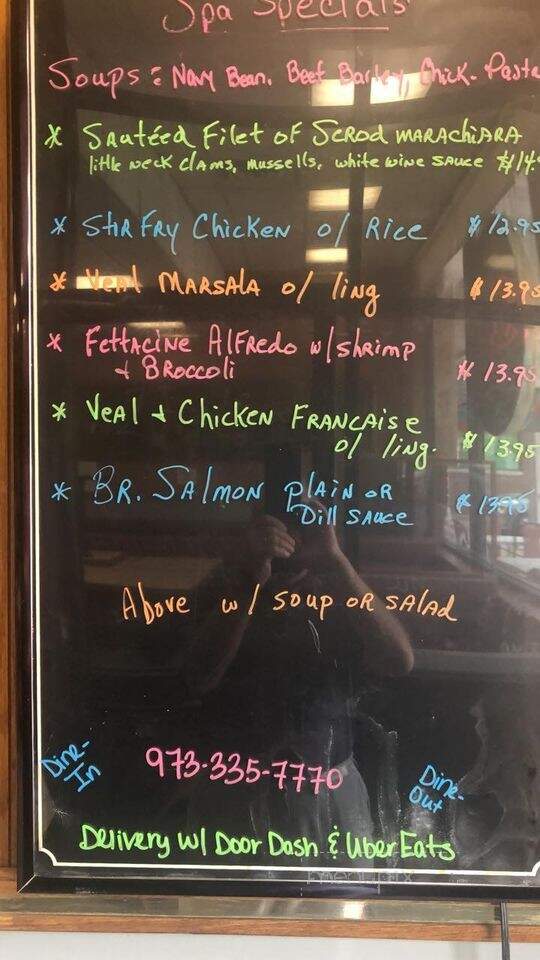 Spa Specials
Soups: Navy Bean, Beef Barley, Chick. Pasta
* Sautéed Filet of Scrod MARAchiARA
little neck clams, mussells, white wine sauce $14.9
* Stir Fry Chicken o/ Rice $12.95
* Veal MARSALA o/ ling $13.95
* Fettacine Alfredo w/shrimp
+ Broccoli $13.95
* Veal + Chicken Francaise
o/ ling. $13.95
* BR. Salmon plain or
Dill sauce $13.95
Above w/ soup or salad
Dine-
In
973-335-7770
Dine-
Out
Delivery w/ Door Dash & Uber Eats